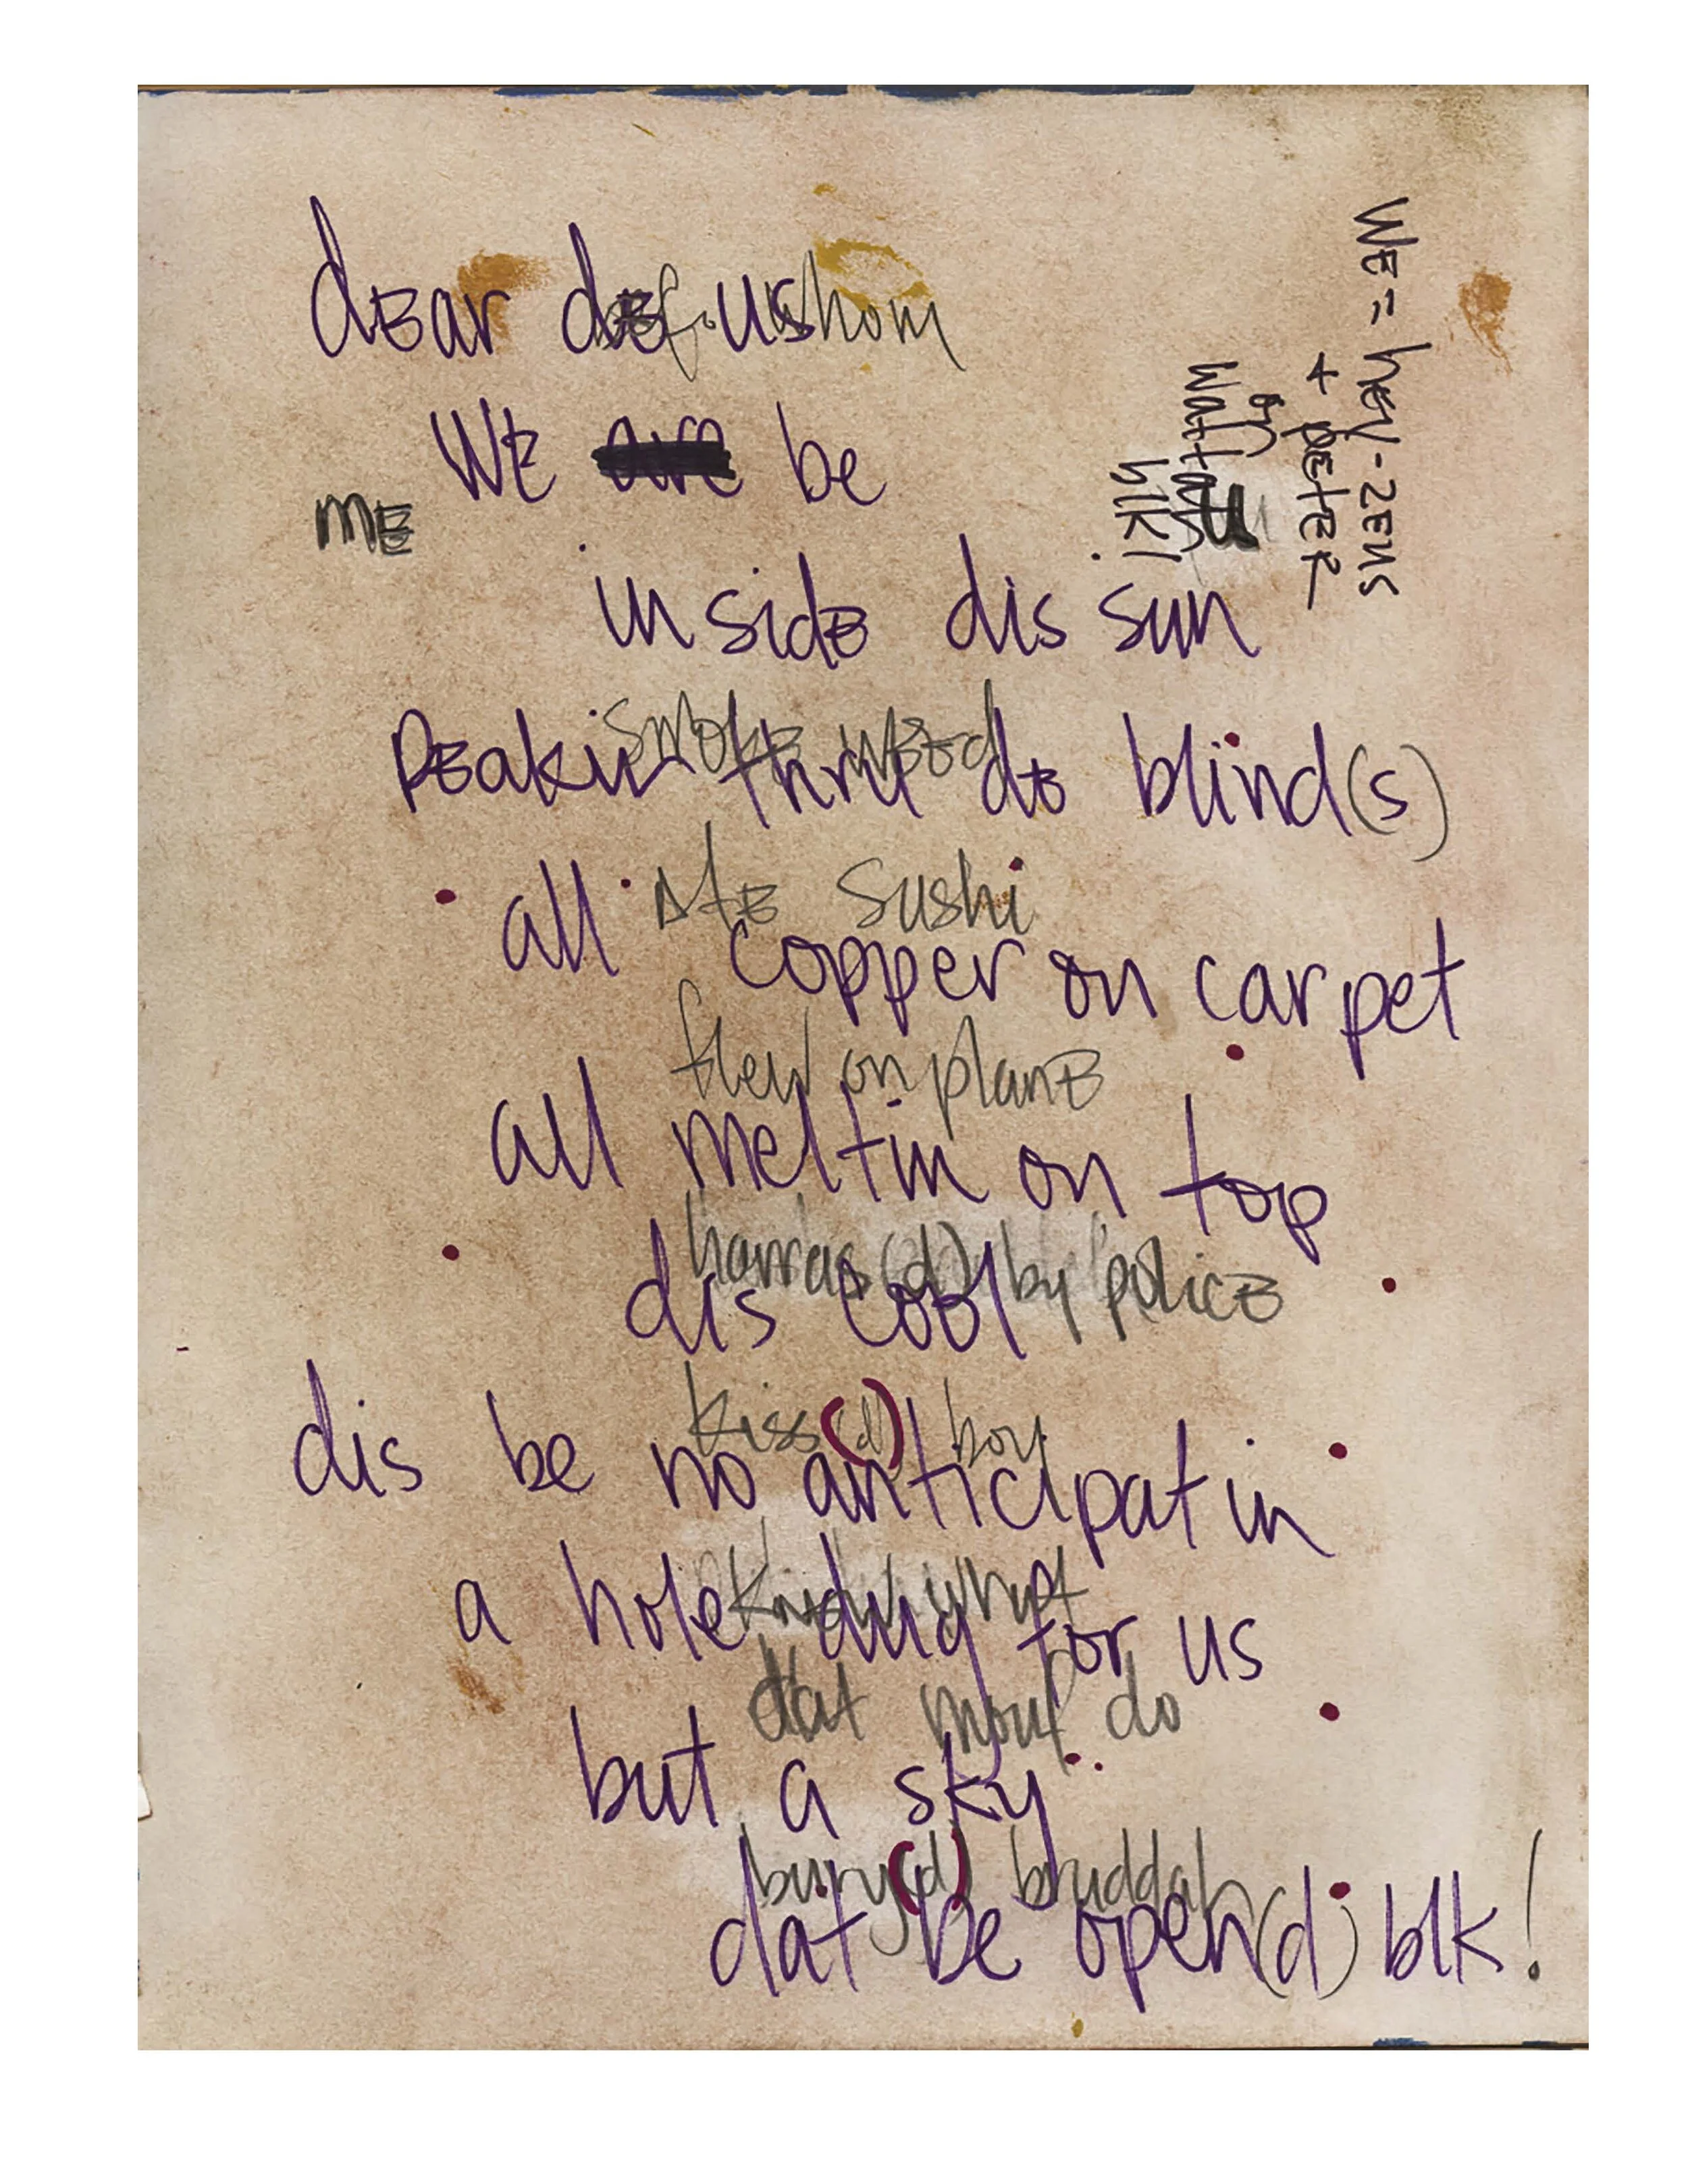 dEar dEf. us
WE are be
inside dis sun
pEakin thru dE blind(s)
all copper on carpet
all meltin on top
dis cool
dis be no anticipatin
a hole dug for us
but a sky
dat be open(d) blk!
whom
mE
smokE wEEd
AtE sushi
flew on planE
harras(d) by policE
kiss(d) boy
dat mouf do
bury(d) bruddah
WE = hEy-zEus
+ pEtEr
on
blk!